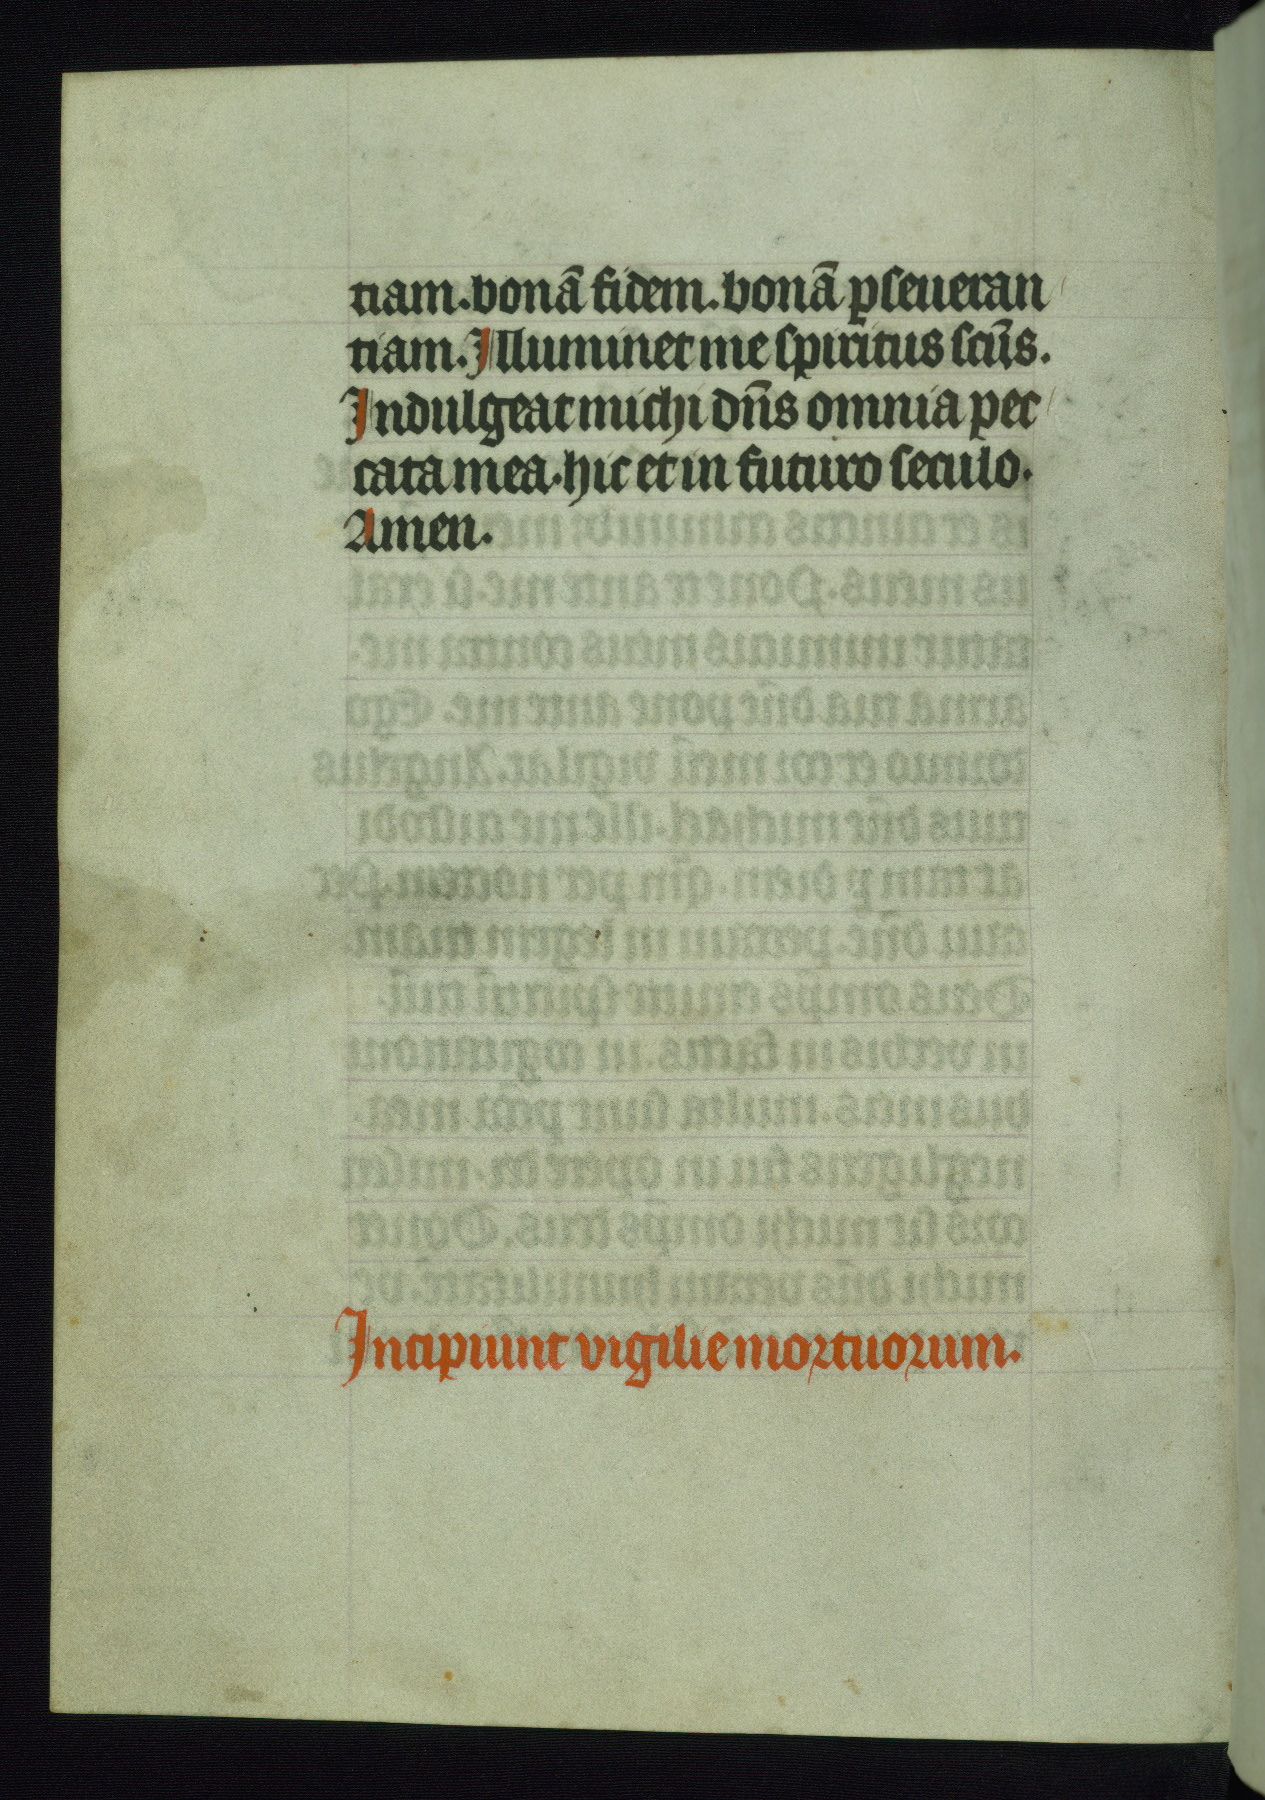 tiam. bonā fidem. bonā ꝑseueran
tiam. Illuminet me spiritus scūs.
Indulgeat michi dn̄s omnia pec
cata mea. hic et in futuro seculo.
Amen.
Incipiunt vigilie mortuorum.